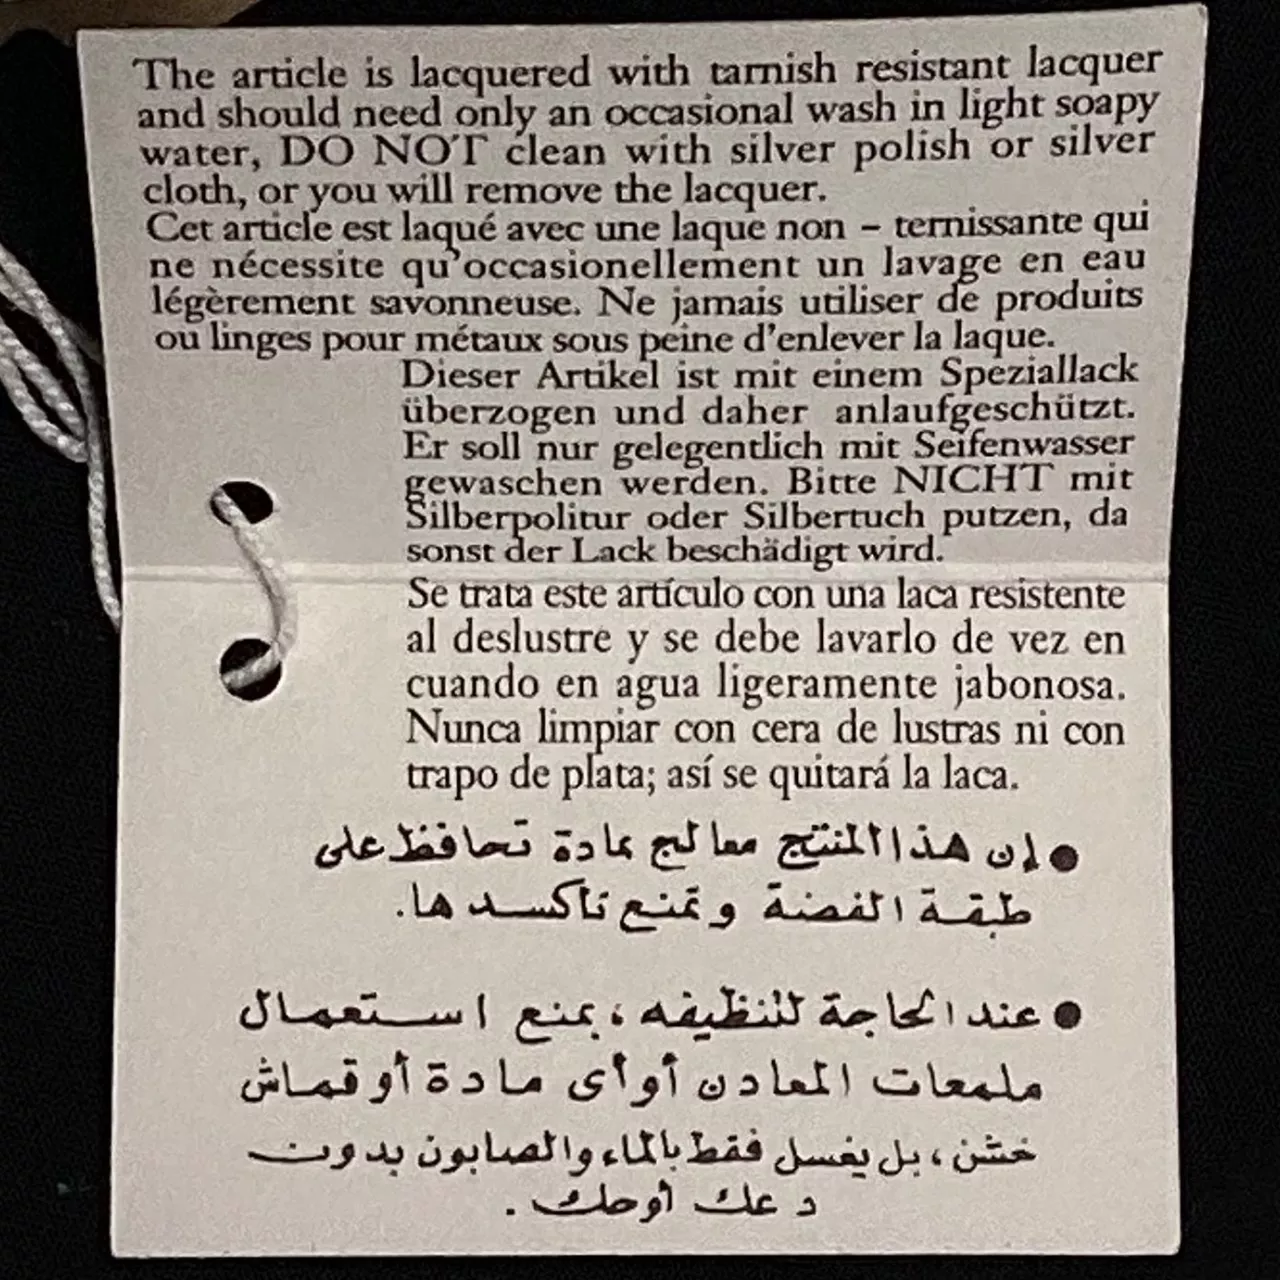 The article is lacquered with tarnish resistant lacquer
and should need only an occasional wash in light soapy
water, DO NOT clean with silver polish or silver
cloth, or you will remove the lacquer.
Cet article est laqué avec une laque non – ternissante qui
ne nécessite qu'occasionellement un lavage en eau
légèrement savonneuse. Ne jamais utiliser de produits
ou linges pour métaux sous peine d'enlever la laque.
Dieser Artikel ist mit einem Speziallack
überzogen und daher anlaufgeschützt.
Er soll nur gelegentlich mit Seifenwasser
gewaschen werden. Bitte NICHT mit
Silberpolitur oder Silbertuch putzen, da
sonst der Lack beschädigt wird.
Se trata este artículo con una laca resistente
al deslustre y se debe lavarlo de vez en
cuando en agua ligeramente jabonosa.
Nunca limpiar con cera de lustras ni con
trapo de plata; así se quitará la laca.
● إن هذا المنتج معالج بمادة تحافظ على
طبقة الفضة وتمنع تأكسدها.
● عند الحاجة لتنظيفه، يمنع استعمال
ملمعات المعادن أو أي مادة أو قماش
خشن، بل يغسل فقط بالماء والصابون بدون
دعك أو حك.